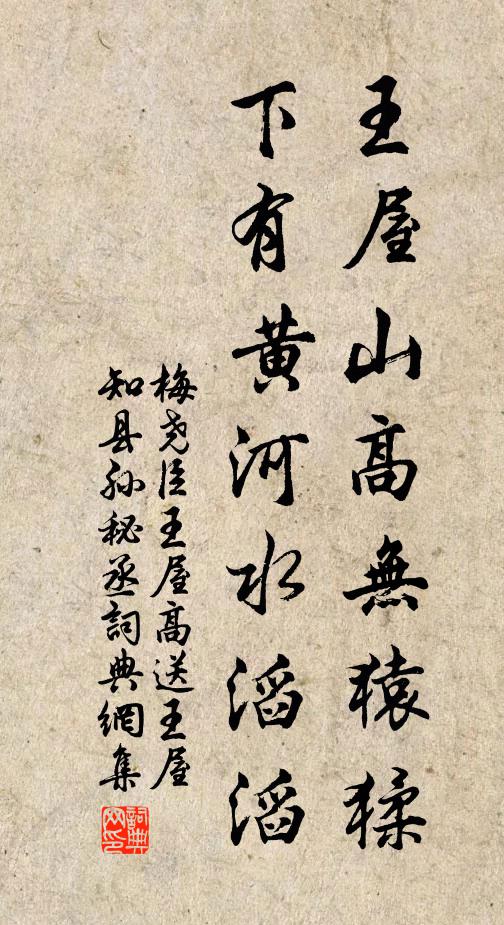 王屋山高無猿猱
下有黄河水滔滔
梅尧臣王屋高送王屋
知县孙秘丞詞典網集
詞典
网印